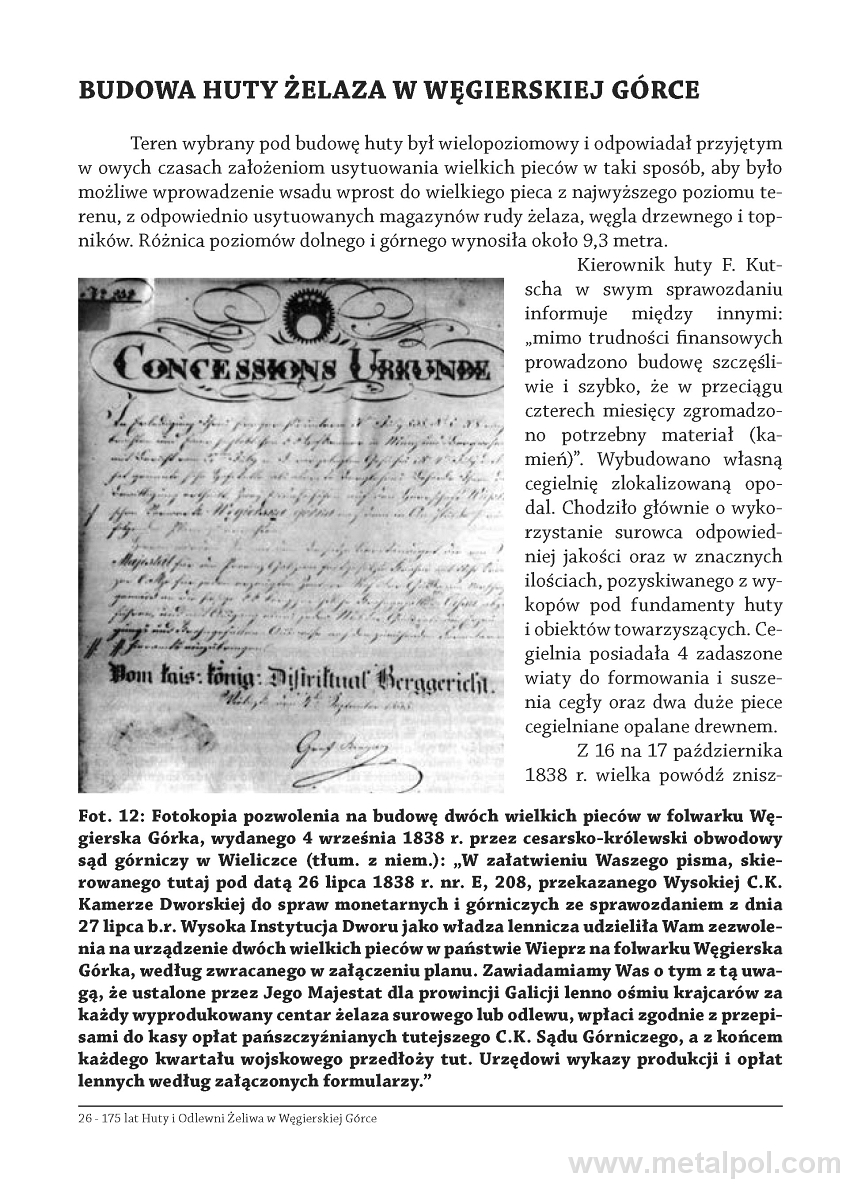 BUDOWA HUTY ŻELAZA W WĘGIERSKIEJ GÓRCE
Teren wybrany pod budowę huty był wielopoziomowy i odpowiadał przyjętym
w owych czasach założeniom usytuowania wielkich pieców w taki sposób, aby było
możliwe wprowadzenie wsadu wprost do wielkiego pieca z najwyższego poziomu te-
renu, z odpowiednio usytuowanych magazynów rudy żelaza, węgla drzewnego i top-
ników. Różnica poziomów dolnego i górnego wynosiła około 9,3 metra.
CONCESSIONS URKUNDE
Vom kais: könig: Distriktual Berggericht.
Kierownik huty F. Kut-
scha w swym sprawozdaniu
informuje między innymi:
„mimo trudności finansowych
prowadzono budowę szczęśli-
wie i szybko, że w przeciągu
czterech miesięcy zgromadzo-
no potrzebny materiał (ka-
mień)”. Wybudowano własną
cegielnię zlokalizowaną opo-
dal. Chodziło głównie o wyko-
rzystanie surowca odpowied-
niej jakości oraz w znacznych
ilościach, pozyskiwanego z wy-
kopów pod fundamenty huty
i obiektów towarzyszących. Ce-
gielnia posiadała 4 zadaszone
wiaty do formowania i susze-
nia cegły oraz dwa duże piece
cegielniane opalane drewnem.
Z 16 na 17 października
1838 r. wielka powódź znisz-
Fot. 12: Fotokopia pozwolenia na budowę dwóch wielkich pieców w folwarku Wę-
gierska Górka, wydanego 4 września 1838 r. przez cesarsko-królewski obwodowy
sąd górniczy w Wieliczce (tłum. z niem.): „W załatwieniu Waszego pisma, skie-
rowanego tutaj pod datą 26 lipca 1838 r. nr. E, 208, przekazanego Wysokiej C.K.
Kamerze Dworskiej do spraw monetarnych i górniczych ze sprawozdaniem z dnia
27 lipca b.r. Wysoka Instytucja Dworu jako władza lennicza udzieliła Wam zezwole-
nia na urządzenie dwóch wielkich pieców w państwie Wieprz na folwarku Węgierska
Górka, według zwracanego w załączeniu planu. Zawiadamiamy Was o tym z tą uwa-
gą, że ustalone przez Jego Majestat dla prowincji Galicji lenno ośmiu krajcarów za
każdy wyprodukowany centar żelaza surowego lub odlewu, wpłaci zgodnie z przepi-
sami do kasy opłat pańszczyźnianych tutejszego C.K. Sądu Górniczego, a z końcem
każdego kwartału wojskowego przedłoży tut. Urzędowi wykazy produkcji i opłat
lennych według załączonych formularzy.”
26 - 175 lat Huty i Odlewni Żeliwa w Węgierskiej Górce
www.metalpol.com